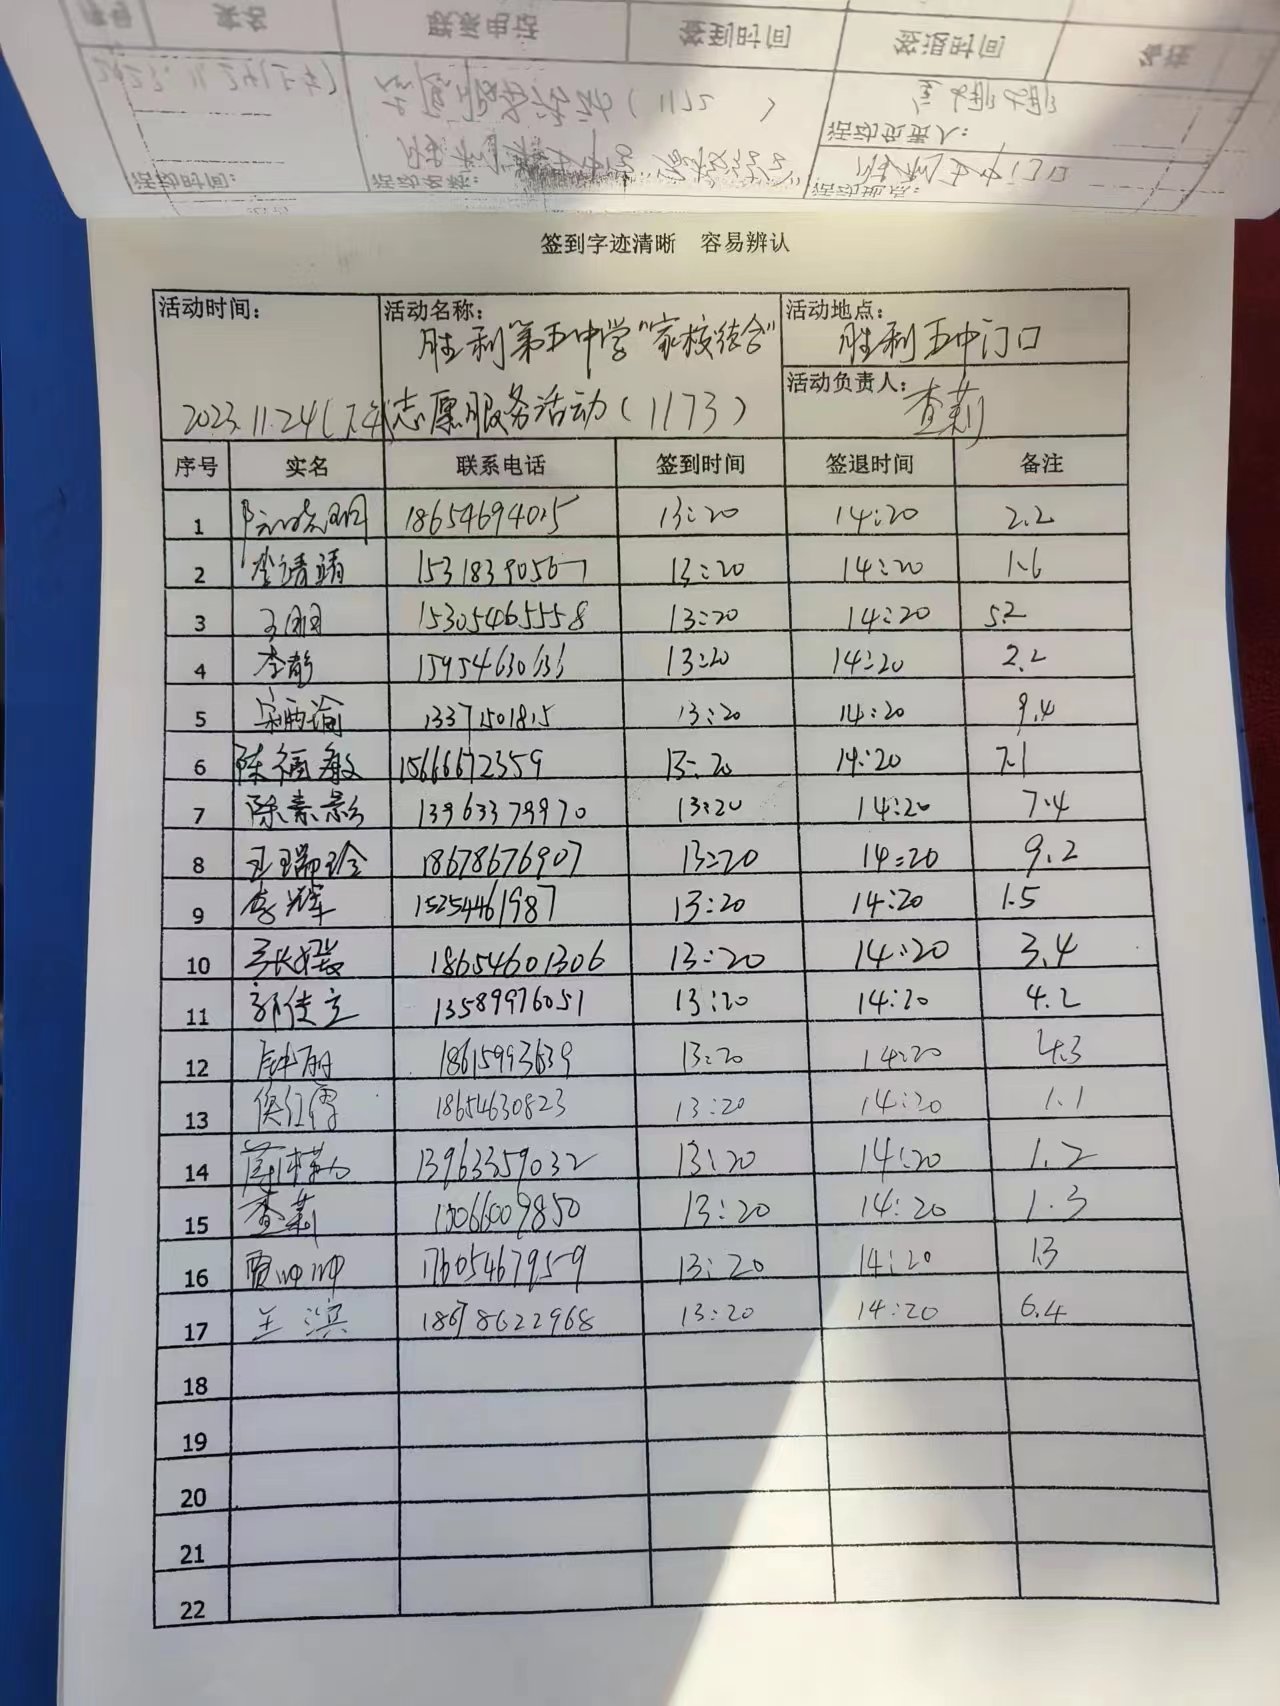 序号 实名 联系电话 签到时间 签退时间 备注
活动负责人:
活动时间: 活动名称: 活动地点:
签到字迹清晰 容易辨认
活动时间: 活动名称: 活动地点:
胜利第五中学"家校结合" 胜利五中门口
活动负责人:
2023.11.24(下午) 志愿服务活动(1173) 查莉
序号 实名 联系电话 签到时间 签退时间 备注
1 18654694015 13:20 14:20 2.2
2 李靖靖 15318390567 13:20 14:20 1.6
3 王丽 15305465558 13:20 14:20 5.2
4 李静 15954630636 13:20 14:20 2.2
5 13371501815 13:20 14:20 9.4
6 陈福敏 15666672359 13:20 14:20 7.1
7 陈素影 13963379970 13:20 14:20 7.4
8 王瑞玲 18678676907 13:20 14:20 9.2
9 李辉 15254461987 13:20 14:20 1.5
10 18654601306 13:20 14:20 3.4
11 郭佳立 13589976051 13:20 14:20 4.2
12 钟丽 18615993639 13:20 14:20 4.3
13 18654630823 13:20 14:20 1.1
14 13963359032 13:20 14:20 1.2
15 查莉 15066009850 13:20 14:20 1.3
16 贾坤坤 17605467959 13:20 14:20 1.3
17 王滨 18678622968 13:20 14:20 6.4
18
19
20
21
22